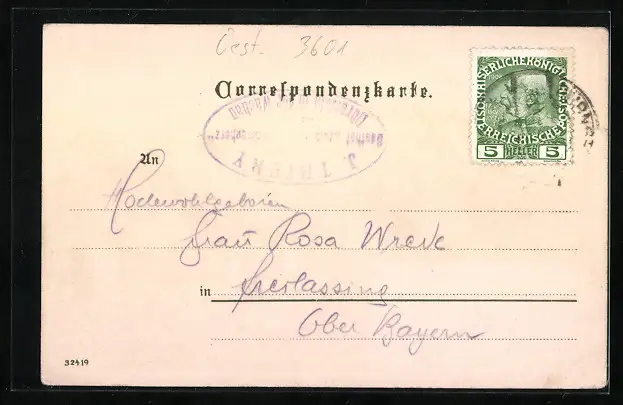 Oest. 3601
Correspondenzkarte.
KAISERLICHE KÖNIGL
ÖSTERREICHISCHE
5 HELLER 5
J. THENY
An
Hochwohlgeboren
Frau Rosa Wrede
in Freilassing
Ober Bayern
32419